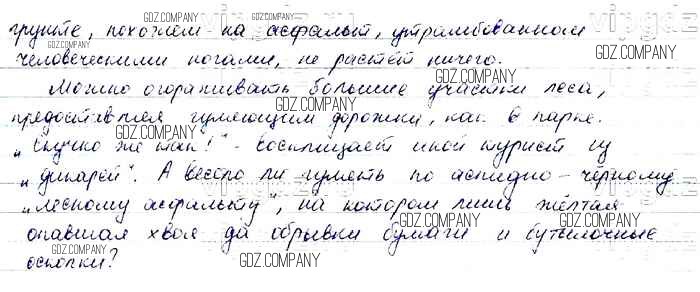 грунте, похожем на асфальт, утрамбованном
человеческими ногами, не растёт ничего.
Можно огораживать большие участки леса,
предоставляя гуляющим дорожки, как в парке.
„Скучно же так!" - восклицает иной турист из
„дикарей". А весело ли гулять по аспидно-чёрному
„лесному асфальту", на котором лишь жёлтая
опавшая хвоя да обрывки бумаги и бутылочные
осколки?
GDZ.COMPANY
GDZ.COMPANY
GDZ.COMPANY
GDZ.COMPANY
GDZ.COMPANY
GDZ.COMPANY
GDZ.COMPANY
GDZ.COMPANY
GDZ.COMPANY
GDZ.COMPANY
GDZ.COMPANY